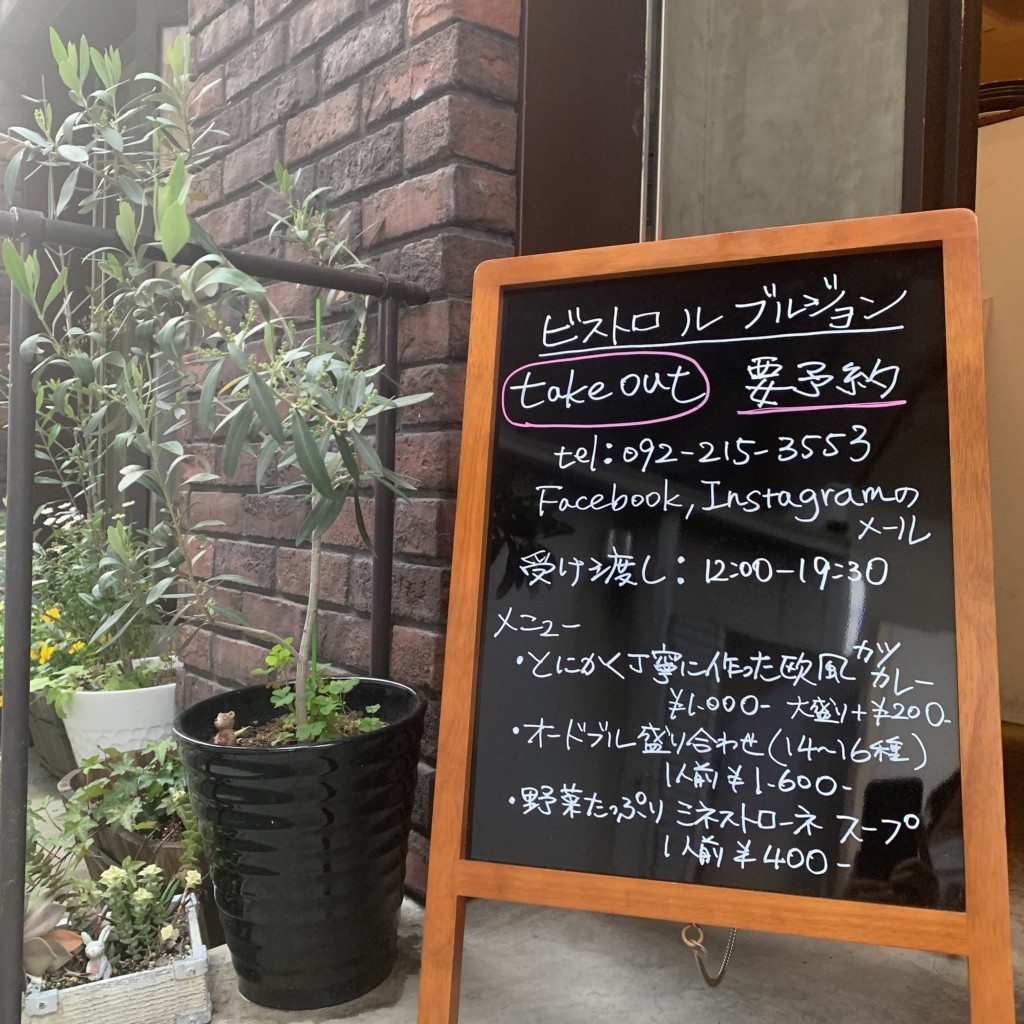 ビストロ ル ブルジョン
take out 要予約
tel:092-215-3553
Facebook,Instagramの
メール
受け渡し:12:00-19:30
メニュー
・とにかく丁寧に作った欧風カツカレー
¥1.000- 大盛り+¥200-
・オードブル盛り合わせ(14~16種)
1人前¥1.600-
・野菜たっぷりミネストローネ スープ
1人前¥400-